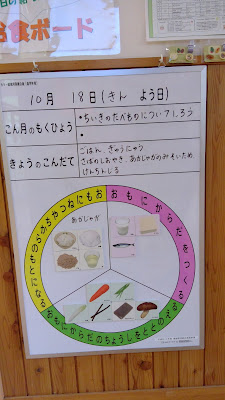 食ボード
10月 18日(きん よう日)
こん月のもくひょう
・ちいきのたべものについてしろう
・
きょうのこんだて
ごはん、ぎゅうにゅう
さばのしおやき、あかじゃがのみそいため
けんちんじる
おもにねつやちからのもとになる
おもにからだをつくる
あかじゃが
おもにからだのちょうしをととのえる